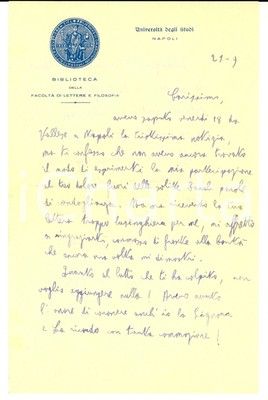 Università degli Studi
NAPOLI
BIBLIOTECA
DELLA
FACOLTÀ DI LETTERE E FILOSOFIA
21-9
Carissimo,
avevo saputo venerdì 18 da
Vallese a Napoli la tristissima notizia,
ma ti confesso che non avevo ancora trovato
il modo di esprimerti la mia partecipazione
al tuo dolore fuori delle solite parole
di condoglianza. Ora che ricevo la tua
lettera troppo lusinghiera per me, mi affretto
a ringraziarti, commosso di fronte alla bontà
che ancora una volta mi dimostri.
Quanto al lutto che ti ha colpito, non
voglio aggiungere nulla! Avevo avuto
l'onore di conoscere anch'io la Signora
e la ricordo con tanta commozione!